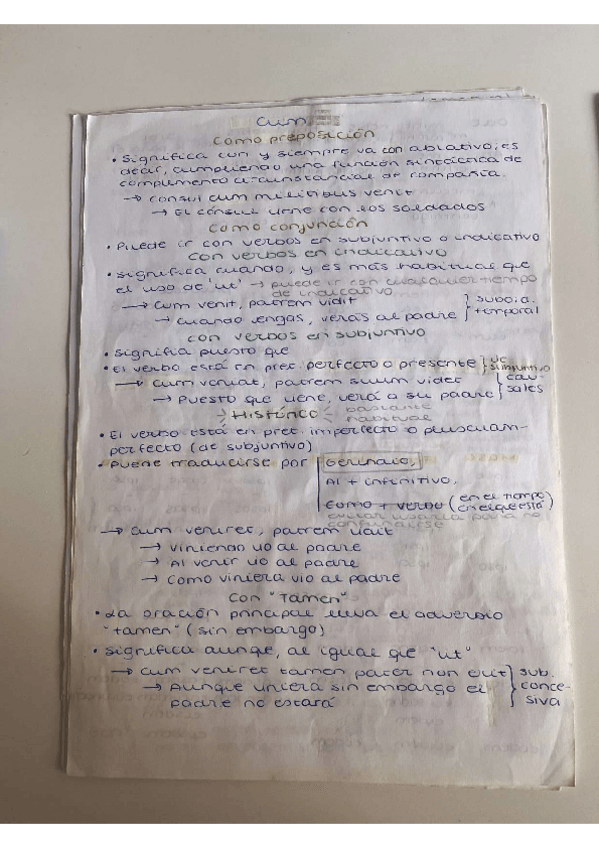 cum
como preposición
• Significa con y siempre va con ablativo; es
decir, cumpliendo una función sintáctica de
complemento circunstancial de compañía.
→ consul cum militibus venit
→ El cónsul viene con los soldados
como conjunción
• Puede ir con verbos en subjuntivo o indicativo
con verbos en indicativo
• Significa cuando, y es más habitual que
el uso de 'ut' → puede ir con cualquier tiempo
de indicativo
→ cum venit, patrem vidit } subord.
→ cuando vengas, verás al padre } temporal
con verbos en subjuntivo
• Significa puesto que
• El verbo está en pret. perfecto o presente } de subjuntivo
→ cum veniat, patrem suum videt } cau-
→ Puesto que viene, verá a su padre } sales
→ Histórico → bastante
habitual
• El verbo está en pret. imperfecto o pluscuam-
perfecto (de subjuntivo)
• Puede traducirse por | Gerundio,
Al + infinitivo,
como + verbo (en el tiempo
en el que está)
evitar usarla para no
confundirse
→ cum veniret, patrem vidit
→ Viniendo vio al padre
→ Al venir vio al padre
→ Como viniera vio al padre
con "Tamen"
• La oración principal lleva el adverbio
"tamen" (sin embargo)
• Significa aunque, al igual que "ut"
→ cum veniret tamen pater non erit } sub.
→ Aunque viniera sin embargo el } conce-
padre no estará } siva